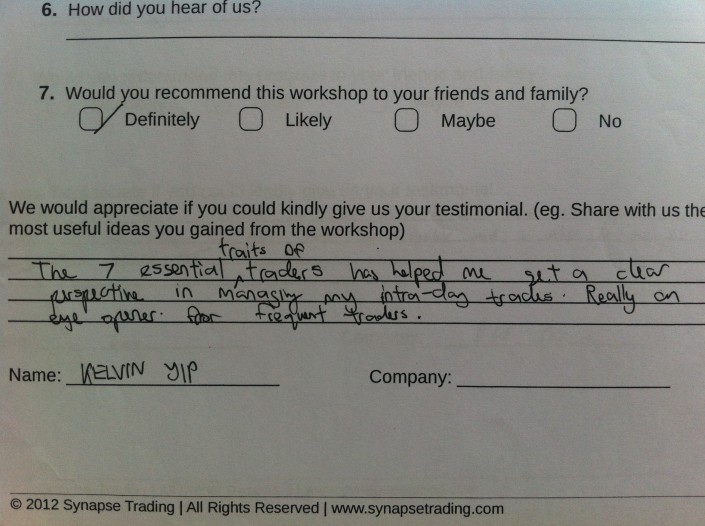 6. How did you hear of us?
7. Would you recommend this workshop to your friends and family?
Definitely Likely Maybe No
We would appreciate if you could kindly give us your testimonial. (eg. Share with us the
most useful ideas you gained from the workshop)
traits of
The 7 essential ^ traders has helped me get a clear
perspective in managing my intra-day trades. Really an
eye opener. For frequent traders.
Name: KELVIN YIP Company:
© 2012 Synapse Trading | All Rights Reserved | www.synapsetrading.com